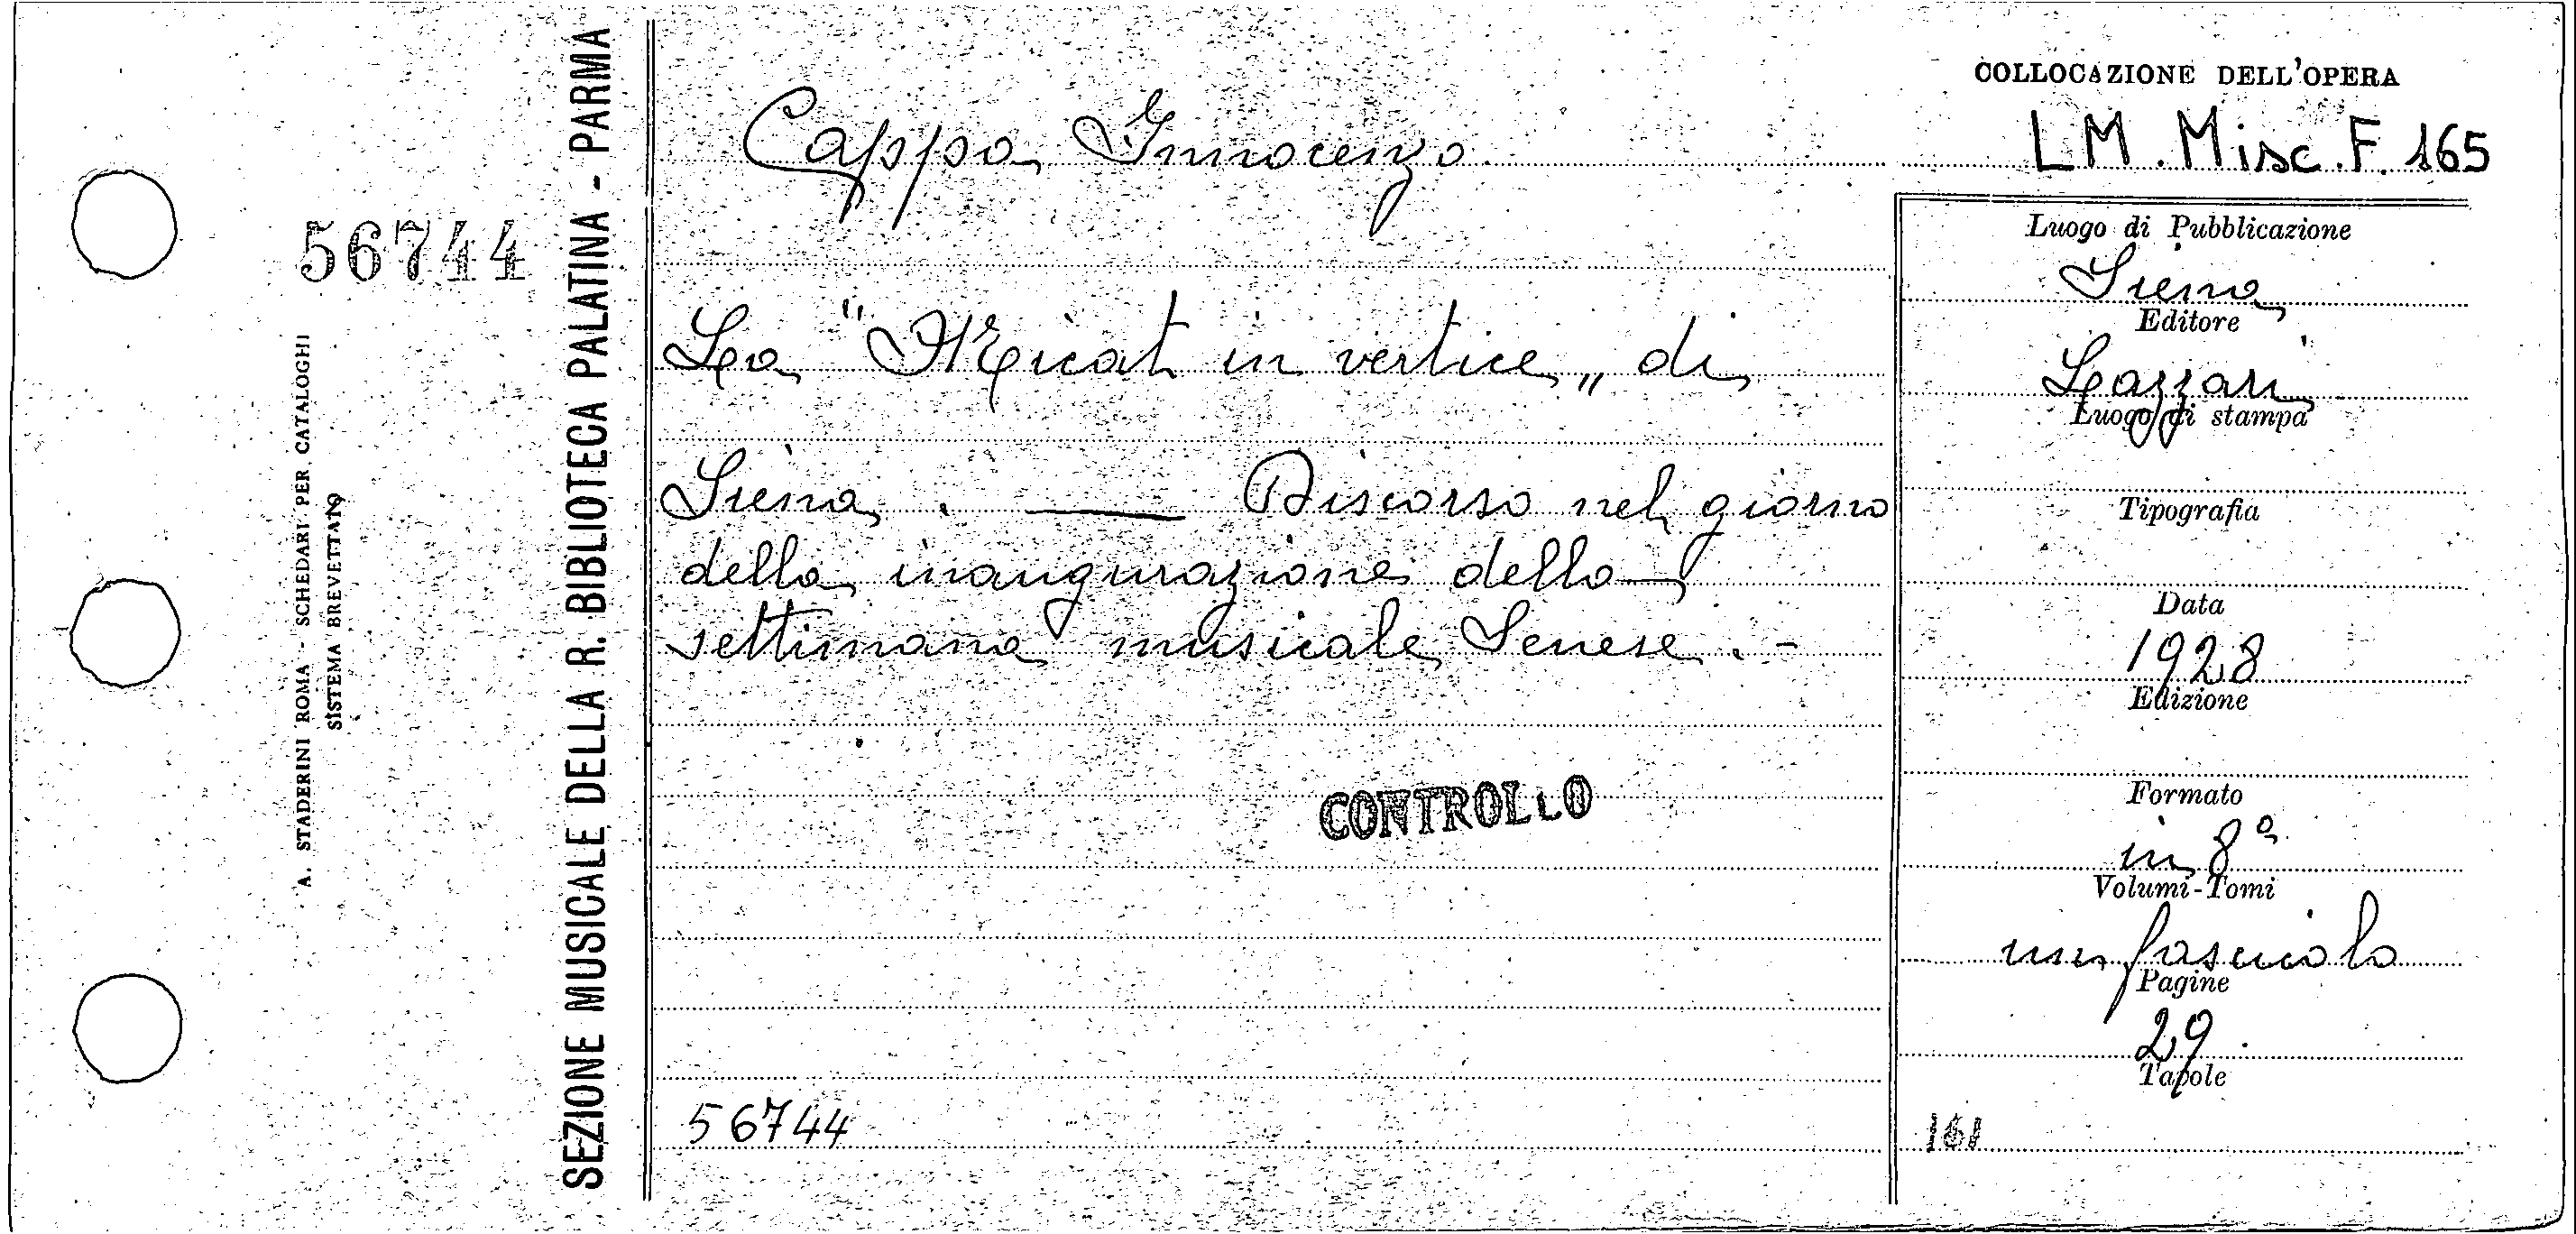 COLLOCAZIONE DELL'OPERA
Cappa Innocenzo.
LM. Misc. F. 165
56744
SEZIONE MUSICALE DELLA R. BIBLIOTECA PALATINA - PARMA
A. STADERINI ROMA - SCHEDARI PER CATALOGHI
SISTEMA BREVETTATO
La "Micat in vertice„ di
Siena. — Discorso nel giorno
della inaugurazione della
settimana musicale Senese. -
CONTROLLO
56744
Luogo di Pubblicazione
Siena
Editore
Lazzari
Luogo di stampa
Tipografia
Data
1928
Edizione
Formato
in 8º
Volumi-Tomi
un fascicolo
Pagine
29.
Tavole
161